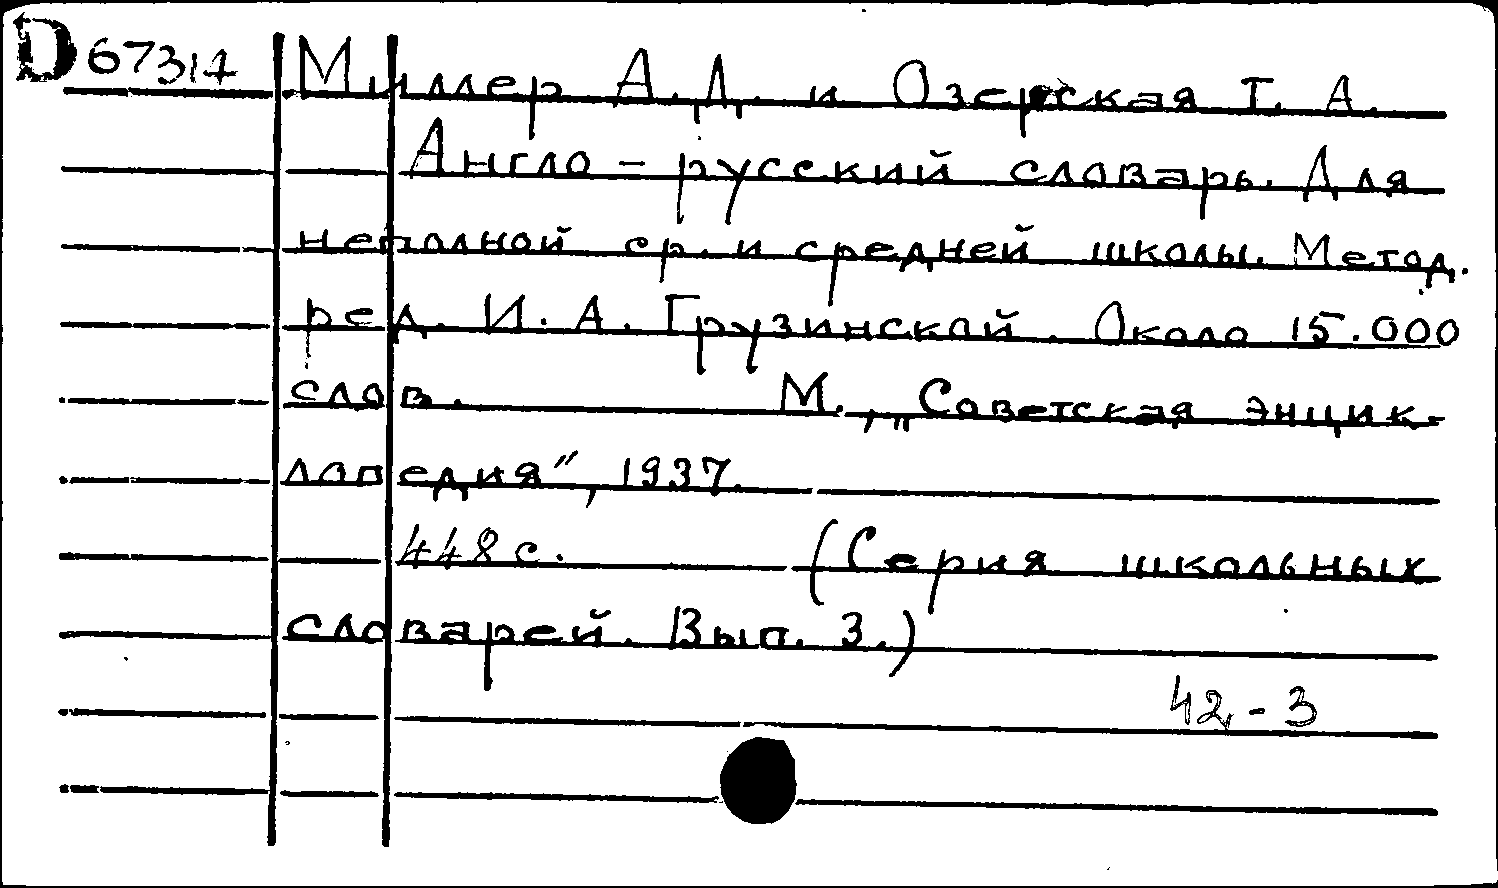 D 67317 Миллер А. Д. и Озерская Т. А.
Англо-русский словарь. Для
неполной ср. и средней школы. Метод.
ред. И. А. Грузинской. Около 15.000
слов. М., „Советская энцик-
лопедия", 1937.
448 с. (Серия школьных
словарей. Вып. 3.)
42-3